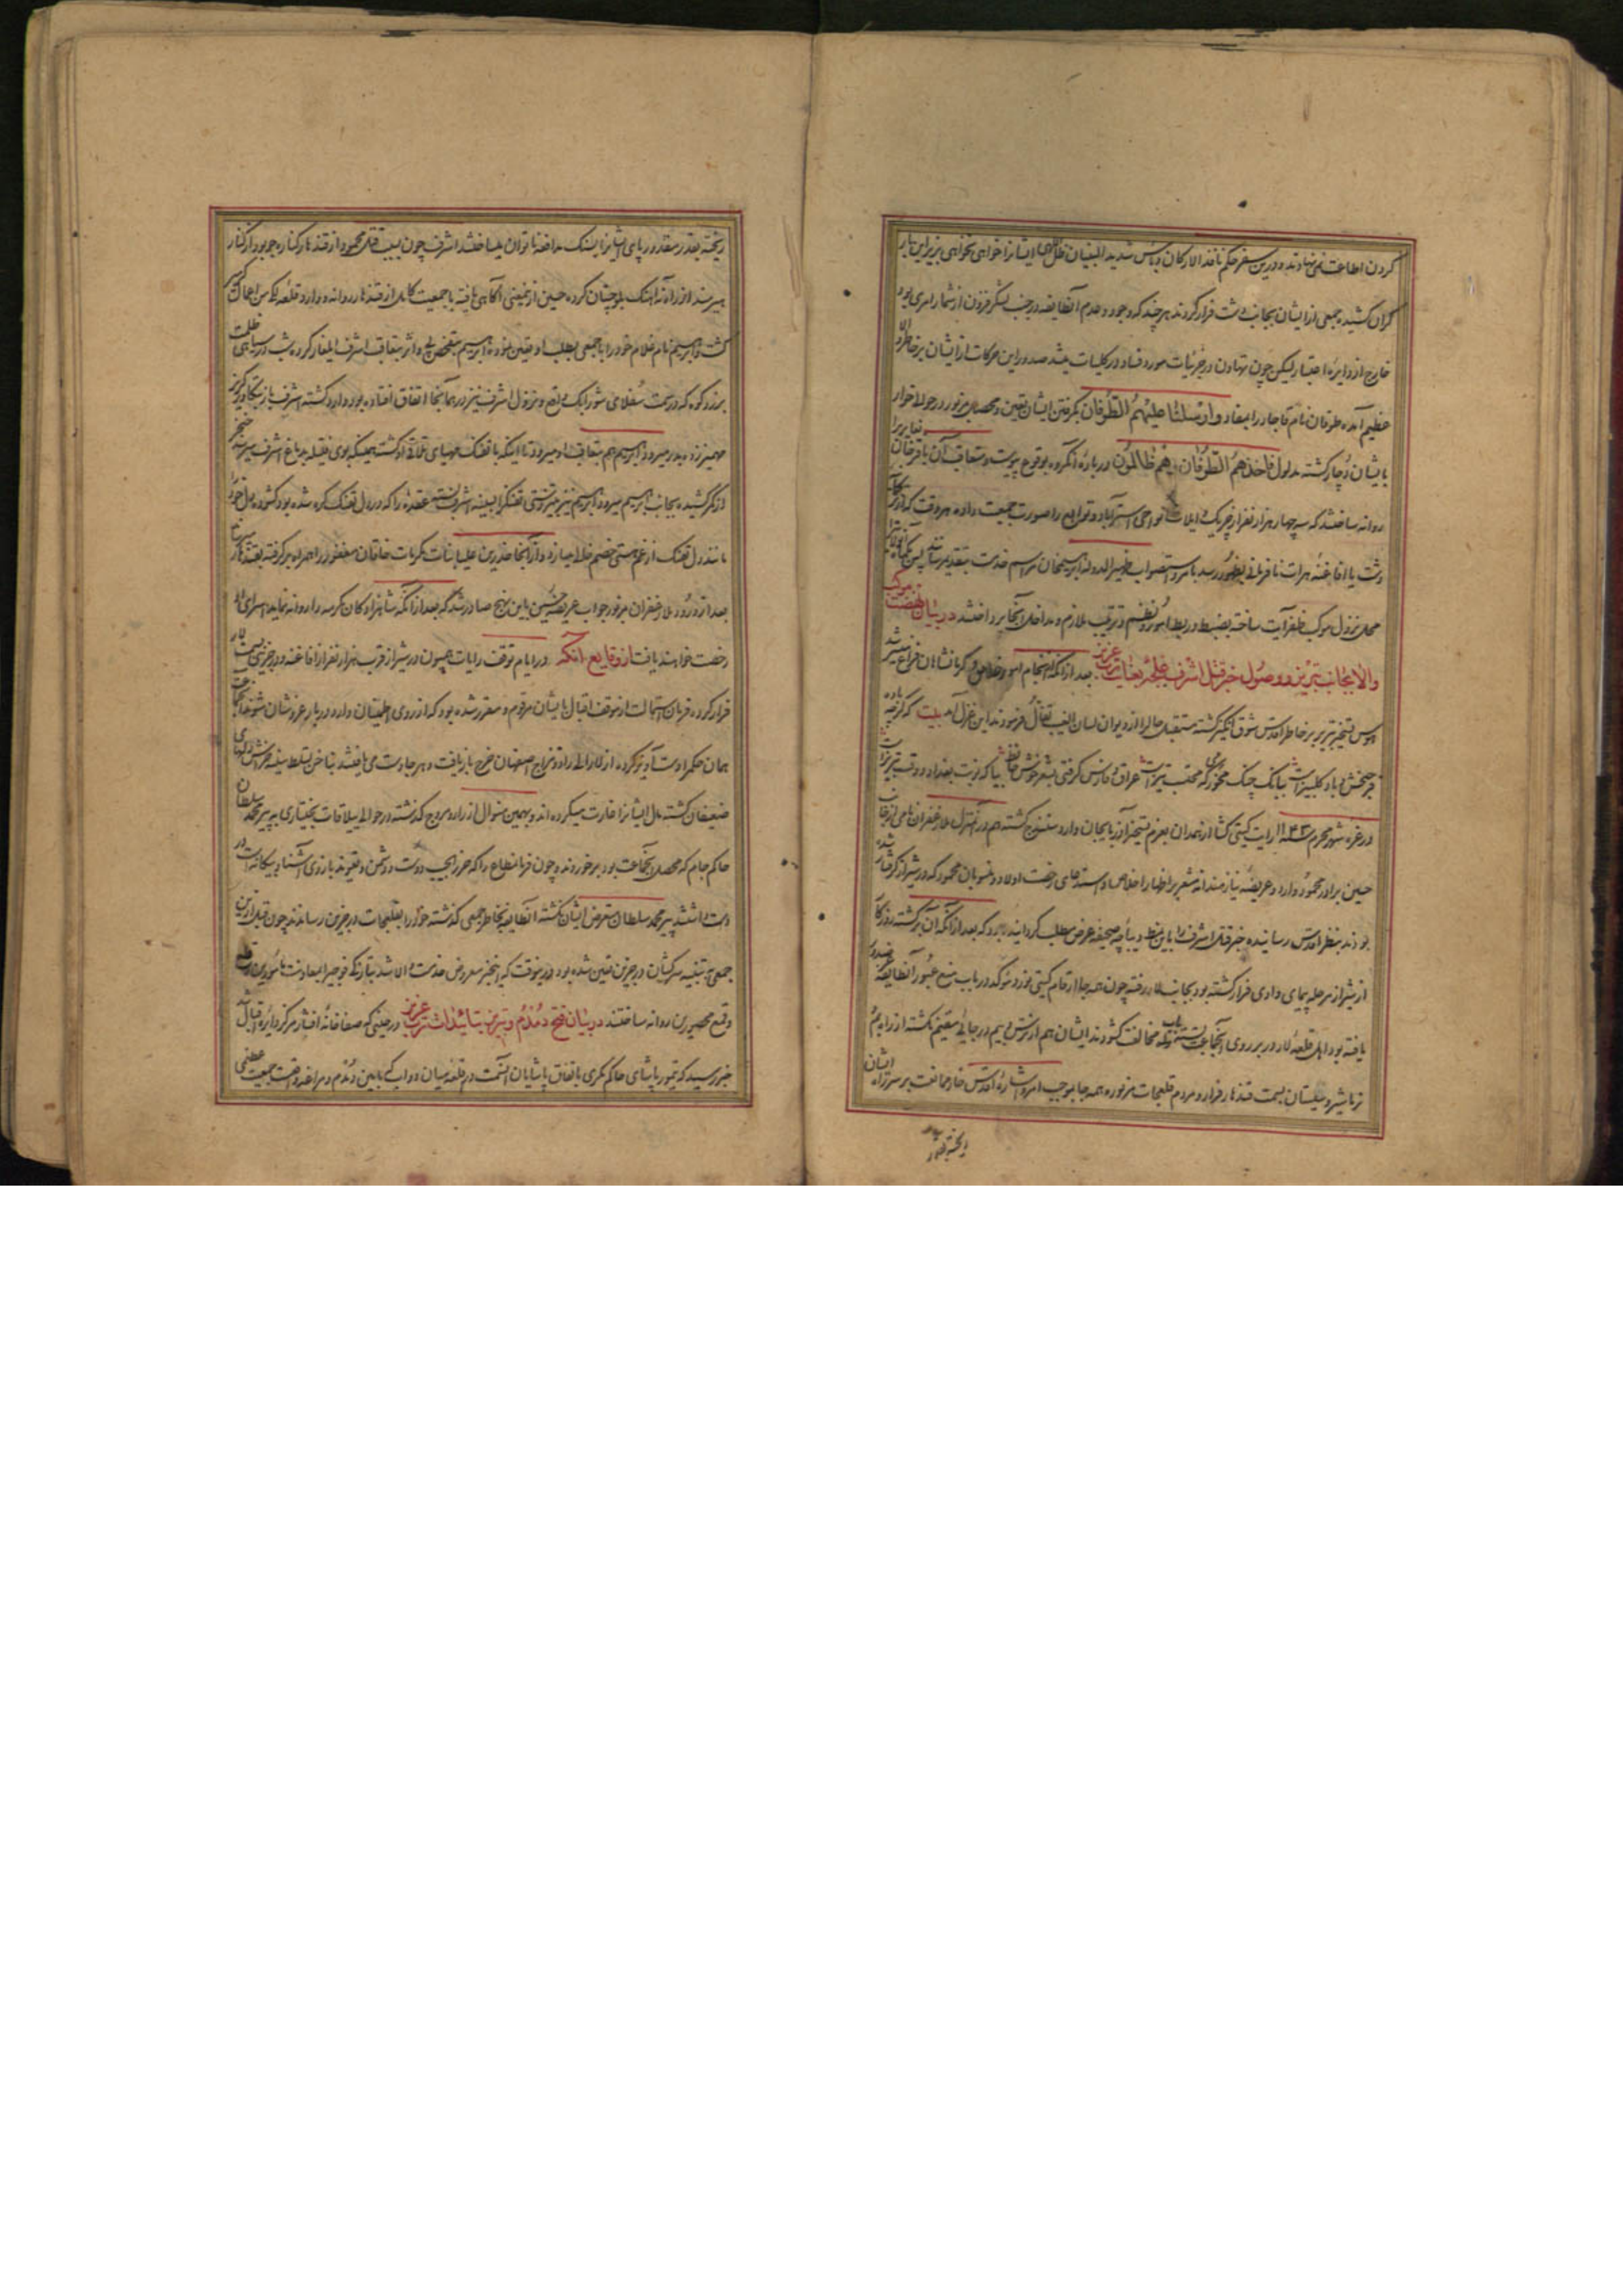 کردن اطاعت نمی‌نهادند و درین سفر حکم نافذ الارکان و باس شدید البنیان ظل اللهی ایشانرا خواهی نخواهی بزیر این بار
گران کشیده جمعی از ایشان بجانب دشت فرار کردند هر چند که وجود و عدم آنطایفه در جنب لشکر فزون از شمار امری بود
خارج از دایره اعتبار لیکن چون تهاون در جزئیات مورد فساد در کلیات میشد صدور این حرکات از ایشان بر خاطر والا
عظیم آمده طوفان نام قاجار را بمفاد و ارسلنا علیهم الطوفان بگرفتن ایشان تعیین و محصل مزبور در حوالی خوار
بایشان دچار کشته مدلول فاخذهم الطوفان و هم ظالمون در باره آنکروه بوقوع پیوست و متعاقب آن باقرخان
روانه ساختند که سه چهار هزار نفر از چریک و ایلات نواحی استرآباد و توابع را صورت جمعیت داده هر وقت که از ترکمانان
دشت یا افاغنه هرات نافرمانی بظهور رسد بامر و استصواب ظهیر الدوله ابراهیمخان مراسم خدمت بتقدیم رساند پس
محل نزول موکب ظفرآیت ساخته بضبط و ربط امور و نظم و ترتیب ملازم و مداخل آنجا پرداختند در بیان نهضت موکب
والا بجانب تبریز و وصول خبر قتل اشرف غلجه بعنایت رب عزیز بعد از آنکه انجام امور خلاص و کرمانشاهان فراغ میسر شد
هوس تسخیر تبریز بر خاطر اقدس شوق انگیز کشته مستقبل حال را از دیوان لسان الغیب تفأل فرمودند این غزل آمد بیت که گرچه باده
فرحبخش و باد کلبیزاست ببانک چنک مخور می که محتسب تیزاست عراق و فارس کرفتی بشعر خوش حافظ بیا که نوبت بغداد و وقت تبریزاست
در غره شهر محرم ۱۱۴۳ رایت کیتی کشا از همدان بعزم تسخیر آذربایجان وارد سنندج کشته هم در آن منزل ملا زعفران نامی از جانب
حسین برادر محمود وارد و عریضه نیازمندانه مشعر بر اظهار اخلاص و استدعای رخصت اولاد و منسوبان محمود که در شیراز گرفتار شده
بودند بنظر اقدس رسانیده خبر قتل اشرف را باین نمط دیباچه صحیفه عرض مطلب کردانیده بود که بعد از آنکه آن برگشته روزگار
از شیراز مرحله پیمای وادی فرار کشته بود بجانب لار رفته چون همه جا ارقام کیتی نورد مؤکد در باب منع عبور آنطایفه صدور
یافته بود اهل قلعه لار در بر روی آنجماعت بسته تیغ مخالفت کشودند ایشان هم از ترس و بیم در جائی مقیم نکشته از راه بم
نرماشیر و سیستان بسمت قندهار فرار و مردم قلعجات مزبوره همه جا بموجب امر و اشاره اقدس خار ممانعت بر سر راه ایشان
ریخته بقدر
ریخته بقدر مقدور پای ایشانرا بسنک مدافعه ناتوان میساختند اشرف چون بسبب قتل محمود از قندهار کناره جو بود از کنار
هیرمند از راه آهنک بلوچستان کرده حسین از معنی آگاهی یافته با جمعیت کامل از قندهار روانه و وارد قلعه لکی من اعمال کرمسیر
کشت و ابراهیم نام غلام خود را با جمعی بطلب او تعیین نموده ابراهیم بتفحص پی و اثر بتعاقب اشرف ایلغار کرده شب در سیاهی ظلمت
بزردکوه که در سمت سفلای شورابک واقع و نزول اشرف نیز در همانجا اتفاق افتاده بود وارد کشته اشرف باز بتکاور کریز
مهمیز زده بدر میرود ابراهیم هم بتعاقب او میرود تا اینکه با تفنک مهیای تلاقی او کشته همینکه بوی فتیله بدماغ اشرف میرسد خنجر
از کمر کشیده بجانب ابراهیم میرود ابراهیم نیز پیشدستی تفنک را بسینه اشرف بسته عقده را که در دل تفنک کره شده بود کشوده دل خود را
مانند دل تفنک از غم هستی خصم خلاص میسازد و از آنجا مخدرین علیا بنات مکرمات خاقان مغفور را همراه بر کرفته بقندهار میرساند
بعد از ورود ملا زعفران مزبور جواب عریضه حسین باین نهج صادر شد که بعد از آنکه شاهزادکان مکرمه را روانه نماید اسرای او
رخصت خواهند یافت از وقایع آنکه در ایام توقف رایات همیون در شیراز قرب هزار نفر از افاغنه و درجزینی بسمت لار
فرار کرده فرمان استمالت از موقف اقبال بایشان مرقوم و مقرر شده بود که از روی اطمینان وارد دربار عز و شان شوند آنجماعت
همان حکم را دست آویز کرده از لار الی راه و خراج اصفهان خرج بازیافت و هر جا دست می‌یافتند بناخن تسلط سینه خراش دلهای
ضعیفان کشته مال ایشانرا غارت میکرده اند و بهمین منوال از راه بروجرد گذشته در حوالی ییلاقات بختیاری به پیر محمد سلطان
حاکم جام که محصل آنجماعت بود برخوردند و چون فرمانمطاع را که حرز الجیب دوست و دشمن و تعویذ بازوی آشنا و بیکانه است در
دست داشتند پیر محمد سلطان متعرض ایشان نکشته آنطایفه بخاطر جمعی گذشته خود را بقلعجات درجزین رساندند چون قبل از این
جمعی به تنبیه سرکشان درجزین تعیین شده بود درینوقت که اینخبر معروض خدمت والا شد بتازکی فوجی بمعاونت مأمورین و قلع
و قمع محصورین روانه ساختند در بیان فتح دمدم و تبریز بتائیدات رب عزیز در حینی که صفا خانه افشار مرکز دایره اقبال شد
خبر رسید که تیمور پاشای حاکم مکری باتفاق پاشایان آنسمت در قلعه میان دوآب که مابین دمدم و مراغه واقعست جمعیت عظیمی